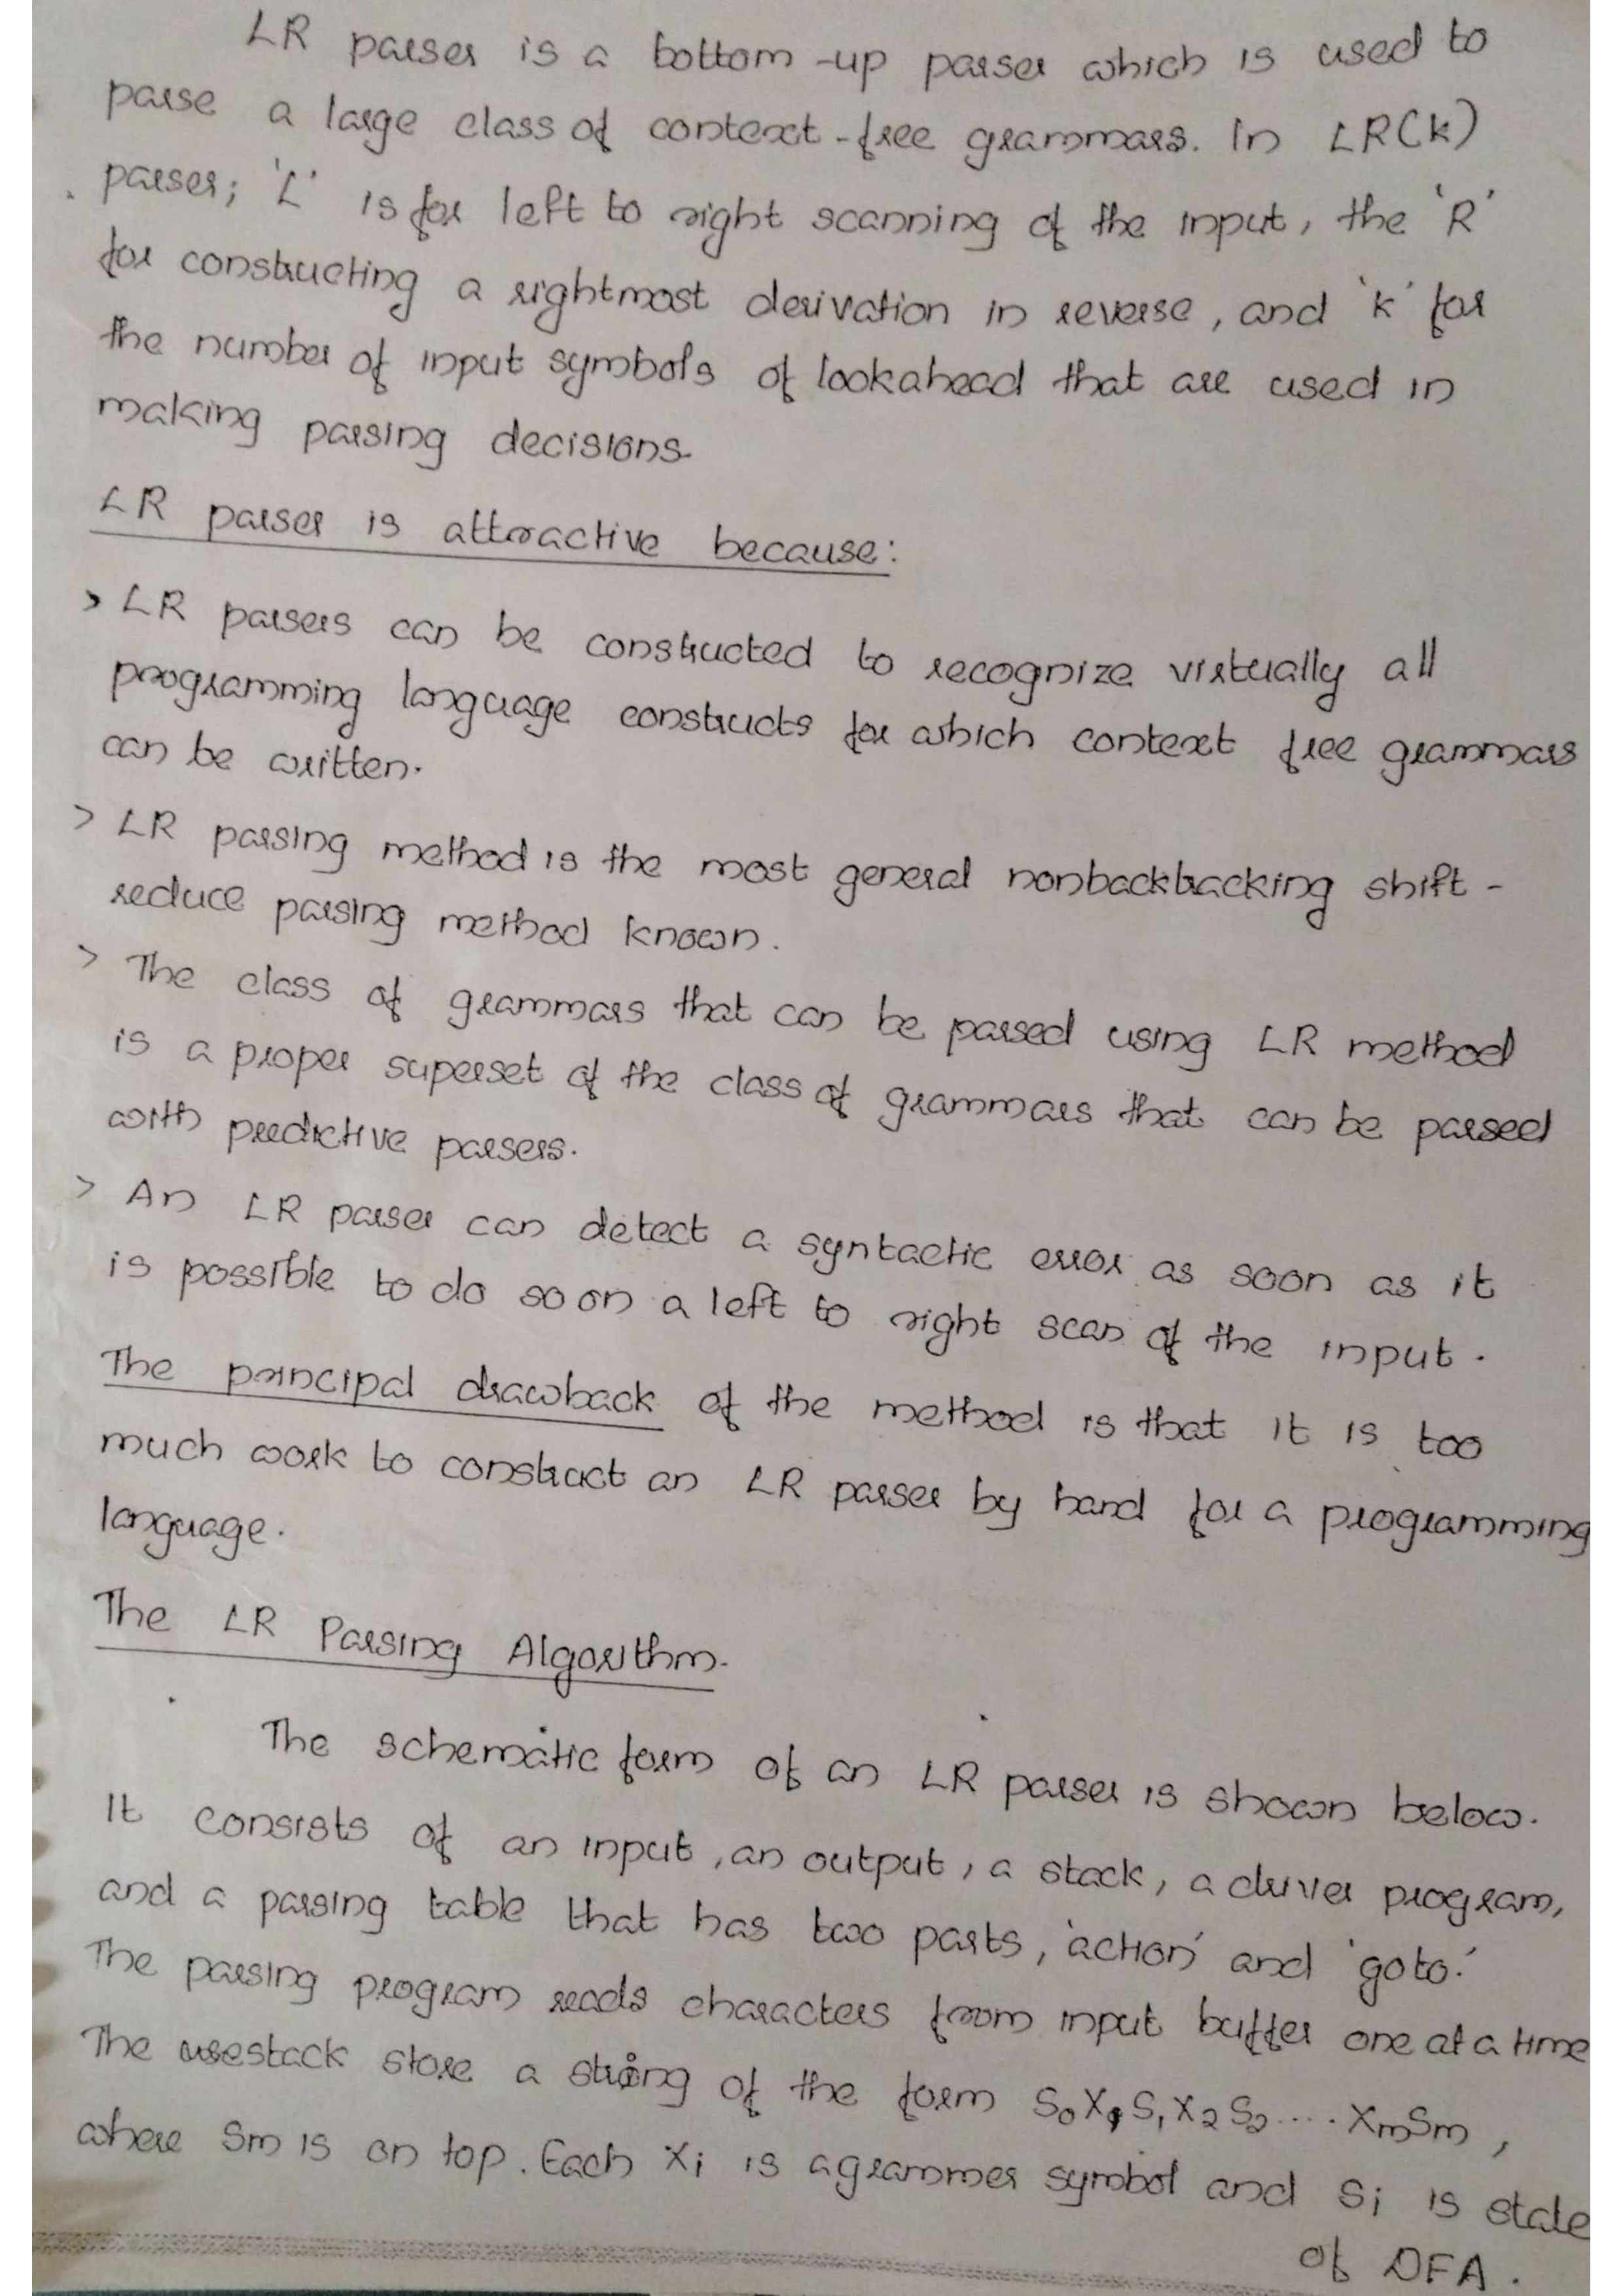 LR parser is a bottom-up parser which is used to
parse a large class of context-free grammars. In LR(k)
parser; 'L' is for left to right scanning of the input, the 'R'
for constructing a rightmost derivation in reverse, and 'k' for
the number of input symbols of lookahead that are used in
making parsing decisions.
LR parser is attractive because:
> LR parsers can be constructed to recognize virtually all
programming language constructs for which context free grammars
can be written.
> LR parsing method is the most general nonbacktracking shift-
reduce parsing method known.
> The class of grammars that can be parsed using LR method
is a proper superset of the class of grammars that can be parsed
with predictive parsers.
> An LR parser can detect a syntactic error as soon as it
is possible to do so on a left to right scan of the input.
The principal drawback of the method is that it is too
much work to construct an LR parser by hand for a programming
language.
The LR Parsing Algorithm.
The schematic form of an LR parser is shown below.
It consists of an input, an output, a stack, a driver program,
and a parsing table that has two parts, 'action' and 'goto.'
The parsing program reads characters from input buffer one at a time
The usestack store a string of the form S₀X₁S₁X₂S₂.... XmSm,
where Sm is on top. Each Xi is a grammer symbol and Si is state
of DFA.